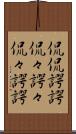 侃侃諤諤
侃々諤々
侃々諤諤